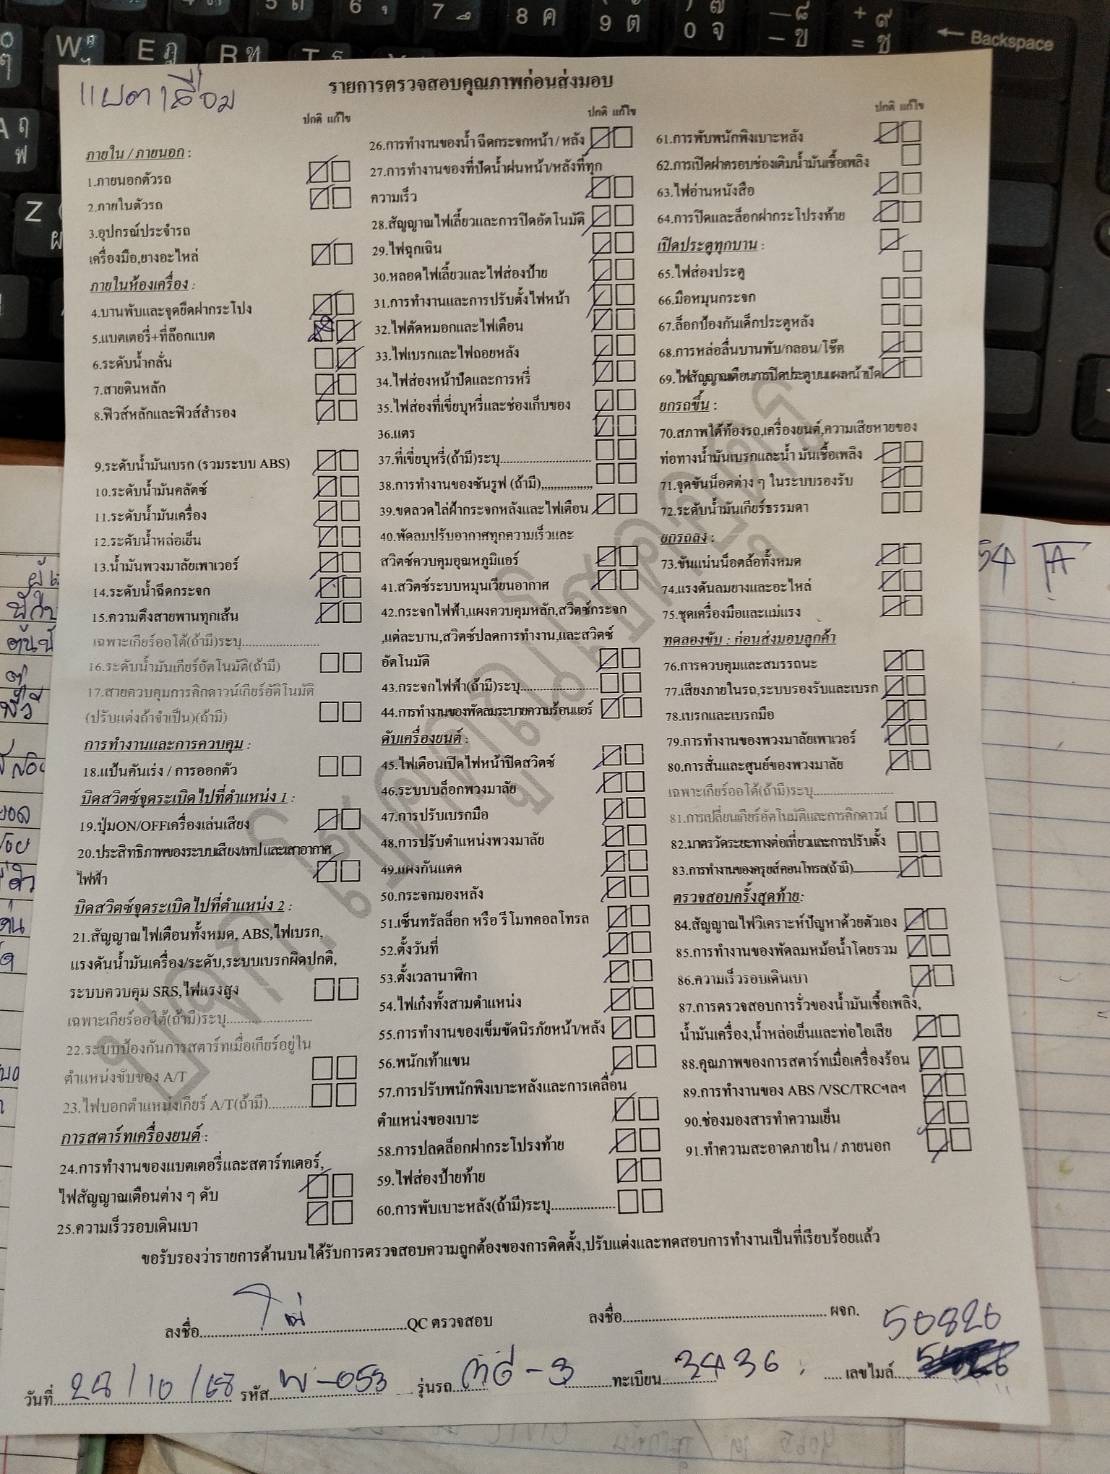 แบตเสื่อม
รายการตรวจสอบคุณภาพก่อนส่งมอบ
ปกติ แก้ไข
ภายใน / ภายนอก :
1.ภายนอกตัวรถ
2.ภายในตัวรถ
3.อุปกรณ์ประจำรถ
เครื่องมือ,ยางอะไหล่
ภายในห้องเครื่อง :
4.บานพับและจุดยึดฝากระโปง
5.แบตเตอรี่+ที่ล๊อกแบต
6.ระดับน้ำกลั่น
7.สายดินหลัก
8.ฟิวส์หลักและฟิวส์สำรอง
9.ระดับน้ำมันเบรก (รวมระบบ ABS)
10.ระดับน้ำมันคลัตช์
11.ระดับน้ำมันเครื่อง
12.ระดับน้ำหล่อเย็น
13.น้ำมันพวงมาลัยเพาเวอร์
14.ระดับน้ำฉีดกระจก
15.ความตึงสายพานทุกเส้น
เฉพาะเกียร์ออโต้(ถ้ามี)ระบุ......................
16.ระดับน้ำมันเกียร์อัตโนมัติ(ถ้ามี)
17.สายควบคุมการคิกดาวน์เกียร์อัตโนมัติ
(ปรับแต่งถ้าจำเป็น)(ถ้ามี)
การทำงานและการควบคุม :
18.แป้นคันเร่ง / การออกตัว
บิดสวิตซ์จุดระเบิดไปที่ตำแหน่ง 1 :
19.ปุ่มON/OFFเครื่องเล่นเสียง
20.ประสิทธิภาพของระบบเสียง/เทปและเสาอากาศ
ไฟฟ้า
บิดสวิตซ์จุดระเบิดไปที่ตำแหน่ง 2 :
21.สัญญาณไฟเตือนทั้งหมด, ABS,ไฟเบรก,
แรงดันน้ำมันเครื่อง/ระดับ,ระบบเบรกผิดปกติ,
ระบบควบคุม SRS,ไฟแรงสูง
เฉพาะเกียร์ออโต้(ถ้ามี)ระบุ......................
22.ระบบป้องกันการสตาร์ทเมื่อเกียร์อยู่ใน
ตำแหน่งขับของ A/T
23.ไฟบอกตำแหน่งเกียร์ A/T(ถ้ามี)............
การสตาร์ทเครื่องยนต์ :
24.การทำงานของแบตเตอรี่และสตาร์ทเตอร์,
ไฟสัญญาณเตือนต่าง ๆ ดับ
25.ความเร็วรอบเดินเบา
ปกติ แก้ไข
26.การทำงานของน้ำฉีดกระจกหน้า / หลัง
27.การทำงานของที่ปัดน้ำฝนหน้า/หลังที่ทุก
ความเร็ว
28.สัญญาณไฟเลี้ยวและการปิดอัตโนมัติ
29.ไฟฉุกเฉิน
30.หลอดไฟเลี้ยวและไฟส่องป้าย
31.การทำงานและการปรับตั้งไฟหน้า
32.ไฟตัดหมอกและไฟเตือน
33.ไฟเบรกและไฟถอยหลัง
34.ไฟส่องหน้าปัดและการหรี่
35.ไฟส่องที่เขี่ยบุหรี่และช่องเก็บของ
36.แตร
37.ที่เขี่ยบุหรี่(ถ้ามี)ระบุ........................
38.การทำงานของซันรูฟ (ถ้ามี)..............
39.ขดลวดไล่ฝ้ากระจกหลังและไฟเตือน
40.พัดลมปรับอากาศทุกความเร็วและ
สวิตช์ควบคุมอุณหภูมิแอร์
41.สวิตช์ระบบหมุนเวียนอากาศ
42.กระจกไฟฟ้า,แผงควบคุมหลัก,สวิตช์กระจก
,แต่ละบาน,สวิตช์ปลดการทำงาน,และสวิตช์
อัตโนมัติ
43.กระจกไฟฟ้า(ถ้ามี)ระบุ....................
44.การทำงานของพัดลมระบายความร้อนแอร์
ดับเครื่องยนต์ :
45.ไฟเตือนเปิดไฟหน้าปิดสวิตซ์
46.ระบบบล็อกพวงมาลัย
47.การปรับเบรกมือ
48.การปรับตำแหน่งพวงมาลัย
49.แผงกันแดด
50.กระจกมองหลัง
51.เซ็นทรัลล็อก หรือ รีโมทคอลโทรล
52.ตั้งวันที่
53.ตั้งเวลานาฬิกา
54.ไฟเก๋งทั้งสามตำแหน่ง
55.การทำงานของเข็มขัดนิรภัยหน้า/หลัง
56.พนักเท้าแขน
57.การปรับพนักพิงเบาะหลังและการเคลื่อน
ตำแหน่งของเบาะ
58.การปลดล็อกฝากระโปรงท้าย
59.ไฟส่องป้ายท้าย
60.การพับเบาะหลัง(ถ้ามี)ระบุ..................
ปกติ แก้ไข
61.การพับพนักพิงเบาะหลัง
62.การเปิดฝาครอบช่องเติมน้ำมันเชื้อเพลิง
63.ไฟอ่านหนังสือ
64.การปิดและล็อกฝากระโปรงท้าย
เปิดประตูทุกบาน :
65.ไฟส่องประตู
66.มือหมุนกระจก
67.ล็อกป้องกันเด็กประตูหลัง
68.การหล่อลื่นบานพับ/กลอน/โช๊ค
69.ไฟสัญญาณเตือนการปิดประตูบนแผงหน้าปัด
ยกรถขึ้น :
70.สภาพใต้ท้องรถ,เครื่องยนต์,ความเสียหายของ
ท่อทางน้ำมันเบรกและน้ำมันเชื้อเพลิง
71.จุดขันน็อตต่าง ๆ ในระบบรองรับ
72.ระดับน้ำมันเกียร์ธรรมดา
ยกรถลง :
73.ขันแน่นน็อตล้อทั้งหมด
74.แรงดันลมยางและอะไหล่
75.ชุดเครื่องมือและแม่แรง
ทดลองขับ : ก่อนส่งมอบลูกค้า
76.การควบคุมและสมรรถนะ
77.เสียงภายในรถ,ระบบรองรับและเบรก
78.เบรกและเบรกมือ
79.การทำงานของพวงมาลัยเพาเวอร์
80.การสั่นและศูนย์ของพวงมาลัย
เฉพาะเกียร์ออโต้(ถ้ามี)ระบุ......................
81.การเปลี่ยนเกียร์อัตโนมัติและการคิกดาวน์
82.มาตรวัดระยะทางต่อเที่ยวและการปรับตั้ง
83.การทำงานของครูยส์คอนโทรล(ถ้ามี)............
ตรวจสอบครั้งสุดท้าย:
84.สัญญาณไฟวิเคราะห์ปัญหาด้วยตัวเอง
85.การทำงานของพัดลมหม้อน้ำโดยรวม
86.ความเร็วรอบเดินเบา
87.การตรวจสอบการรั่วของน้ำมันเชื้อเพลิง,
น้ำมันเครื่อง,น้ำหล่อเย็นและท่อไอเสีย
88.คุณภาพของการสตาร์ทเมื่อเครื่องร้อน
89.การทำงานของ ABS /VSC/TRCฯลฯ
90.ช่องมองสารทำความเย็น
91.ทำความสะอาดภายใน / ภายนอก
ขอรับรองว่ารายการด้านบนได้รับการตรวจสอบความถูกต้องของการติดตั้ง,ปรับแต่งและทดสอบการทำงานเป็นที่เรียบร้อยแล้ว
ลงชื่อ..........QC ตรวจสอบ ลงชื่อ.......... ผจก.
50826
วันที่ 28/10/68 รหัส พ-053 รุ่นรถ ทะเบียน 3436 เลขไมล์